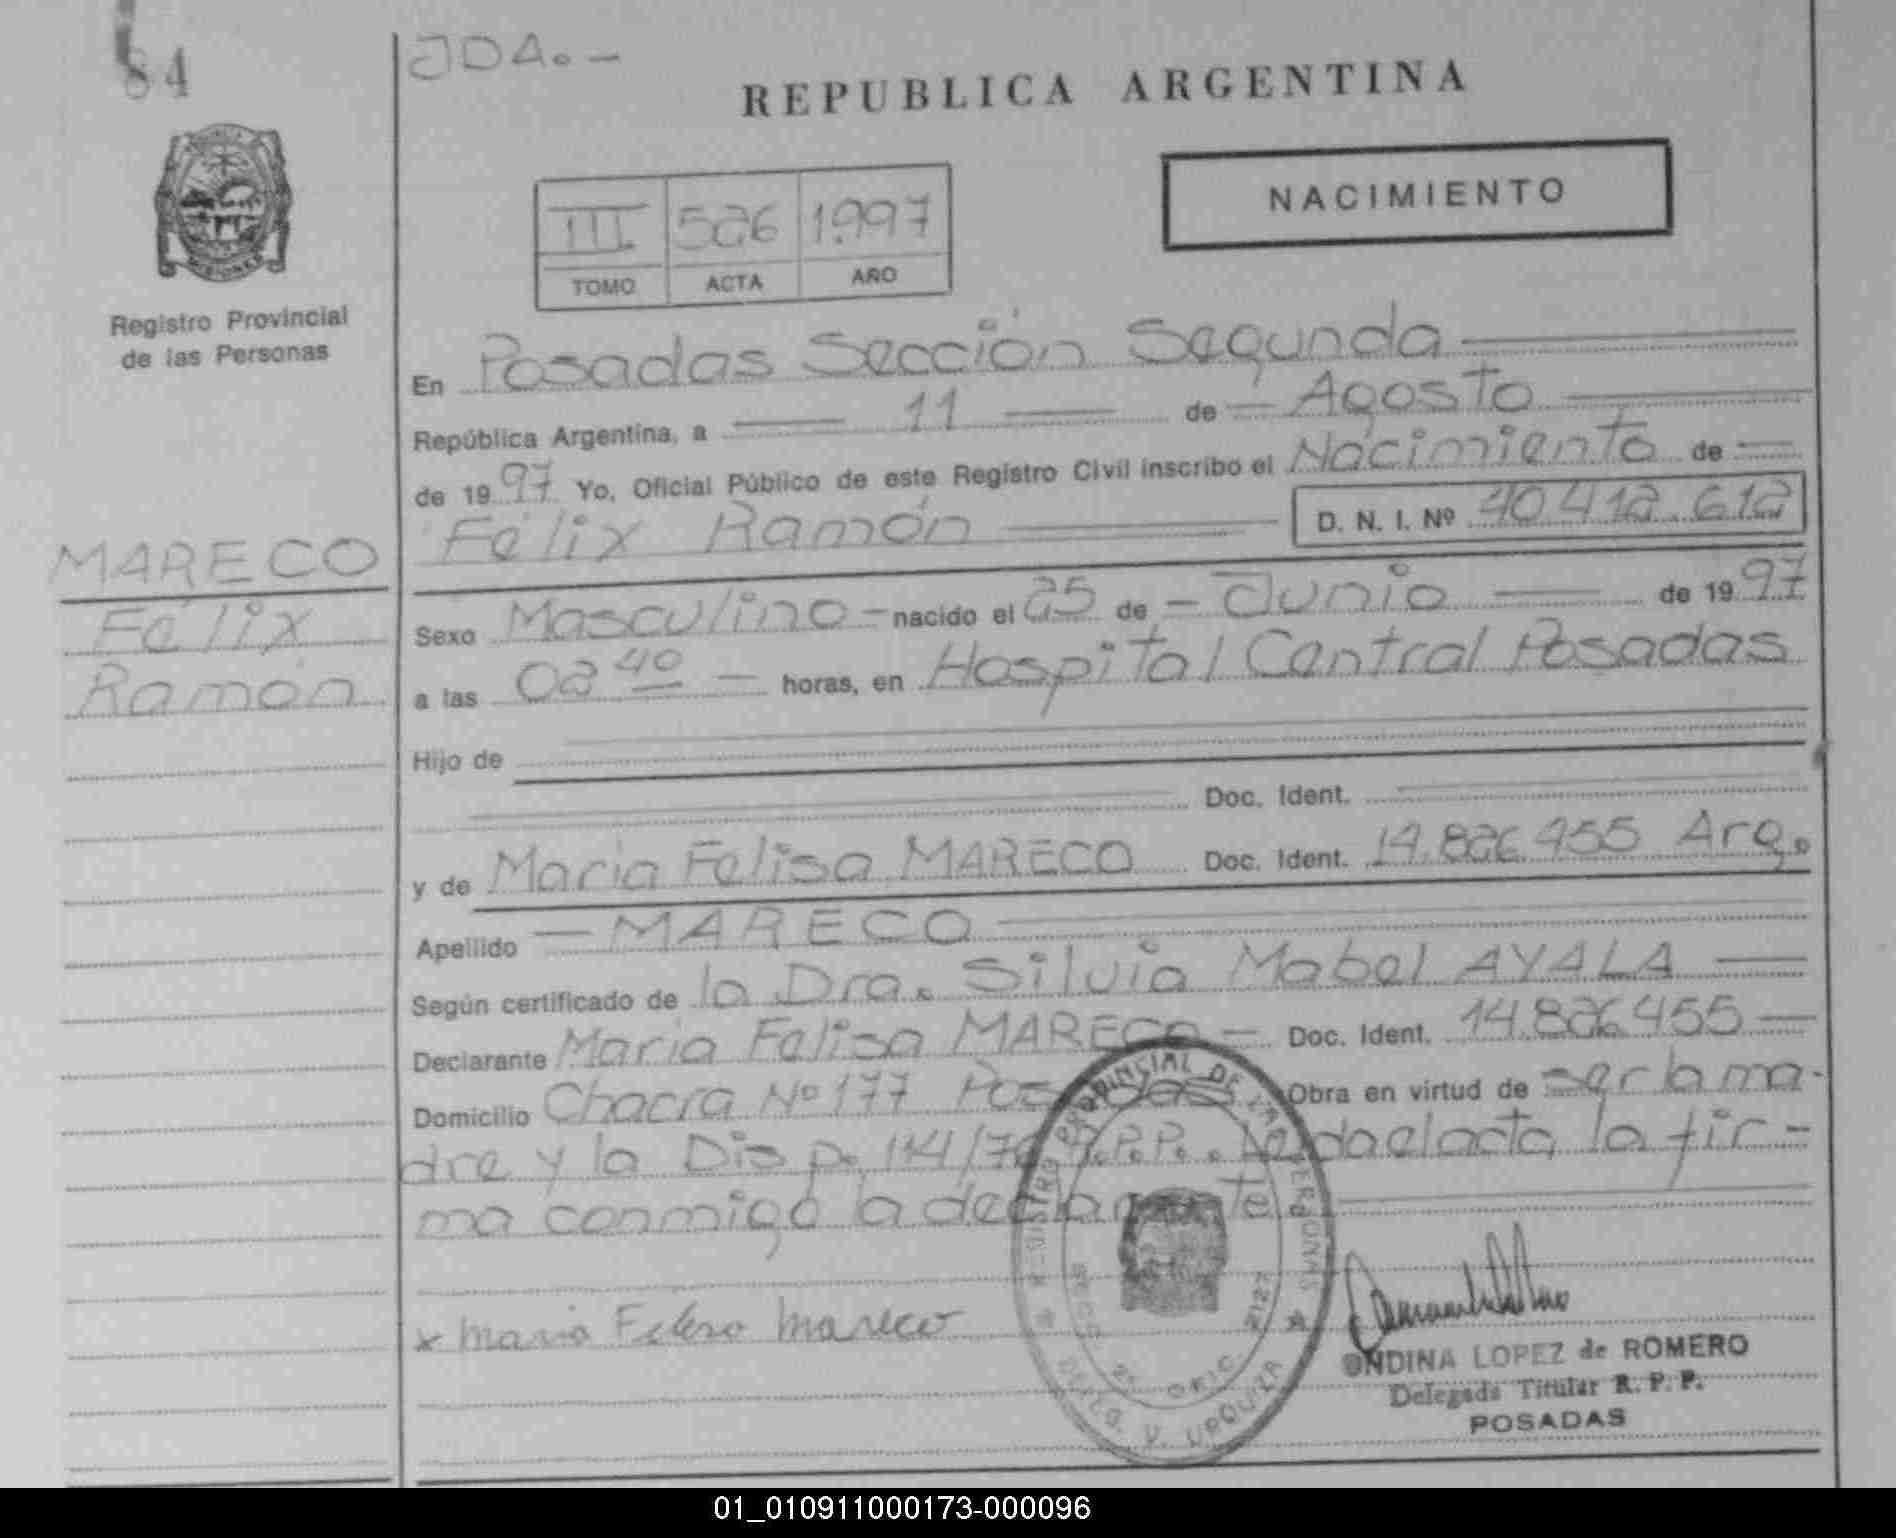 84
JDA. -
REPUBLICA ARGENTINA
NACIMIENTO
III. 526 1.997
TOMO ACTA AÑO
MISIONES
Registro Provincial
de las Personas
En Posadas Sección Segunda
República Argentina, a 11 de Agosto
de 1997 Yo, Oficial Público de este Registro Civil inscribo el Nacimiento de
Félix Ramón D. N. I. Nº 40.412.612
MARECO
Félix
Ramón
Sexo Masculino - nacido el 25 de - Junio de 1997
a las 02 40 horas, en Hospital Central Posadas
Hijo de
Doc. Ident.
y de Maria Felisa MARECO Doc. Ident. 14.826.455 Arg.
Apellido - MARECO
Según certificado de la Dra. Silvia Mabel AYALA
Declarante Maria Felisa MARECO - Doc. Ident. 14.826.455
Domicilio Chacra Nº 177 Posadas Obra en virtud de ser la ma-
dre y la Disp. 114/76 R.P.P.. Leida el acta, la fir-
ma conmigo la declarante
x Maria Felisa Mareco
REGISTRO PROVINCIAL DE LAS PERSONAS
SECC. 2ª OFIC. 2127
DELEG. V. URQUIZA
ONDINA LOPEZ de ROMERO
Delegada Titular R. P. P.
POSADAS
01_010911000173-000096